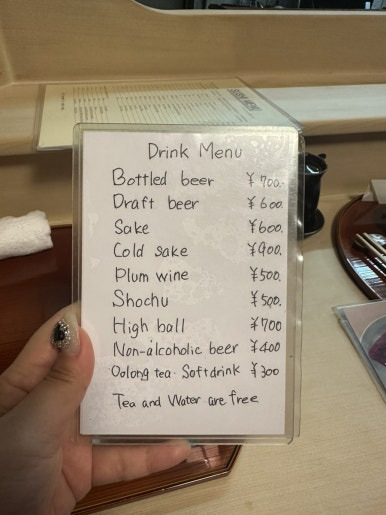 Drink Menu
Bottled beer ¥700.
Draft beer ¥600.
Sake ¥600.
Cold sake ¥900.
Plum wine ¥500.
Shochu ¥500.
High ball ¥700
Non-alcoholic beer ¥400
Oolong tea・Softdrink ¥300
Tea and Water are free